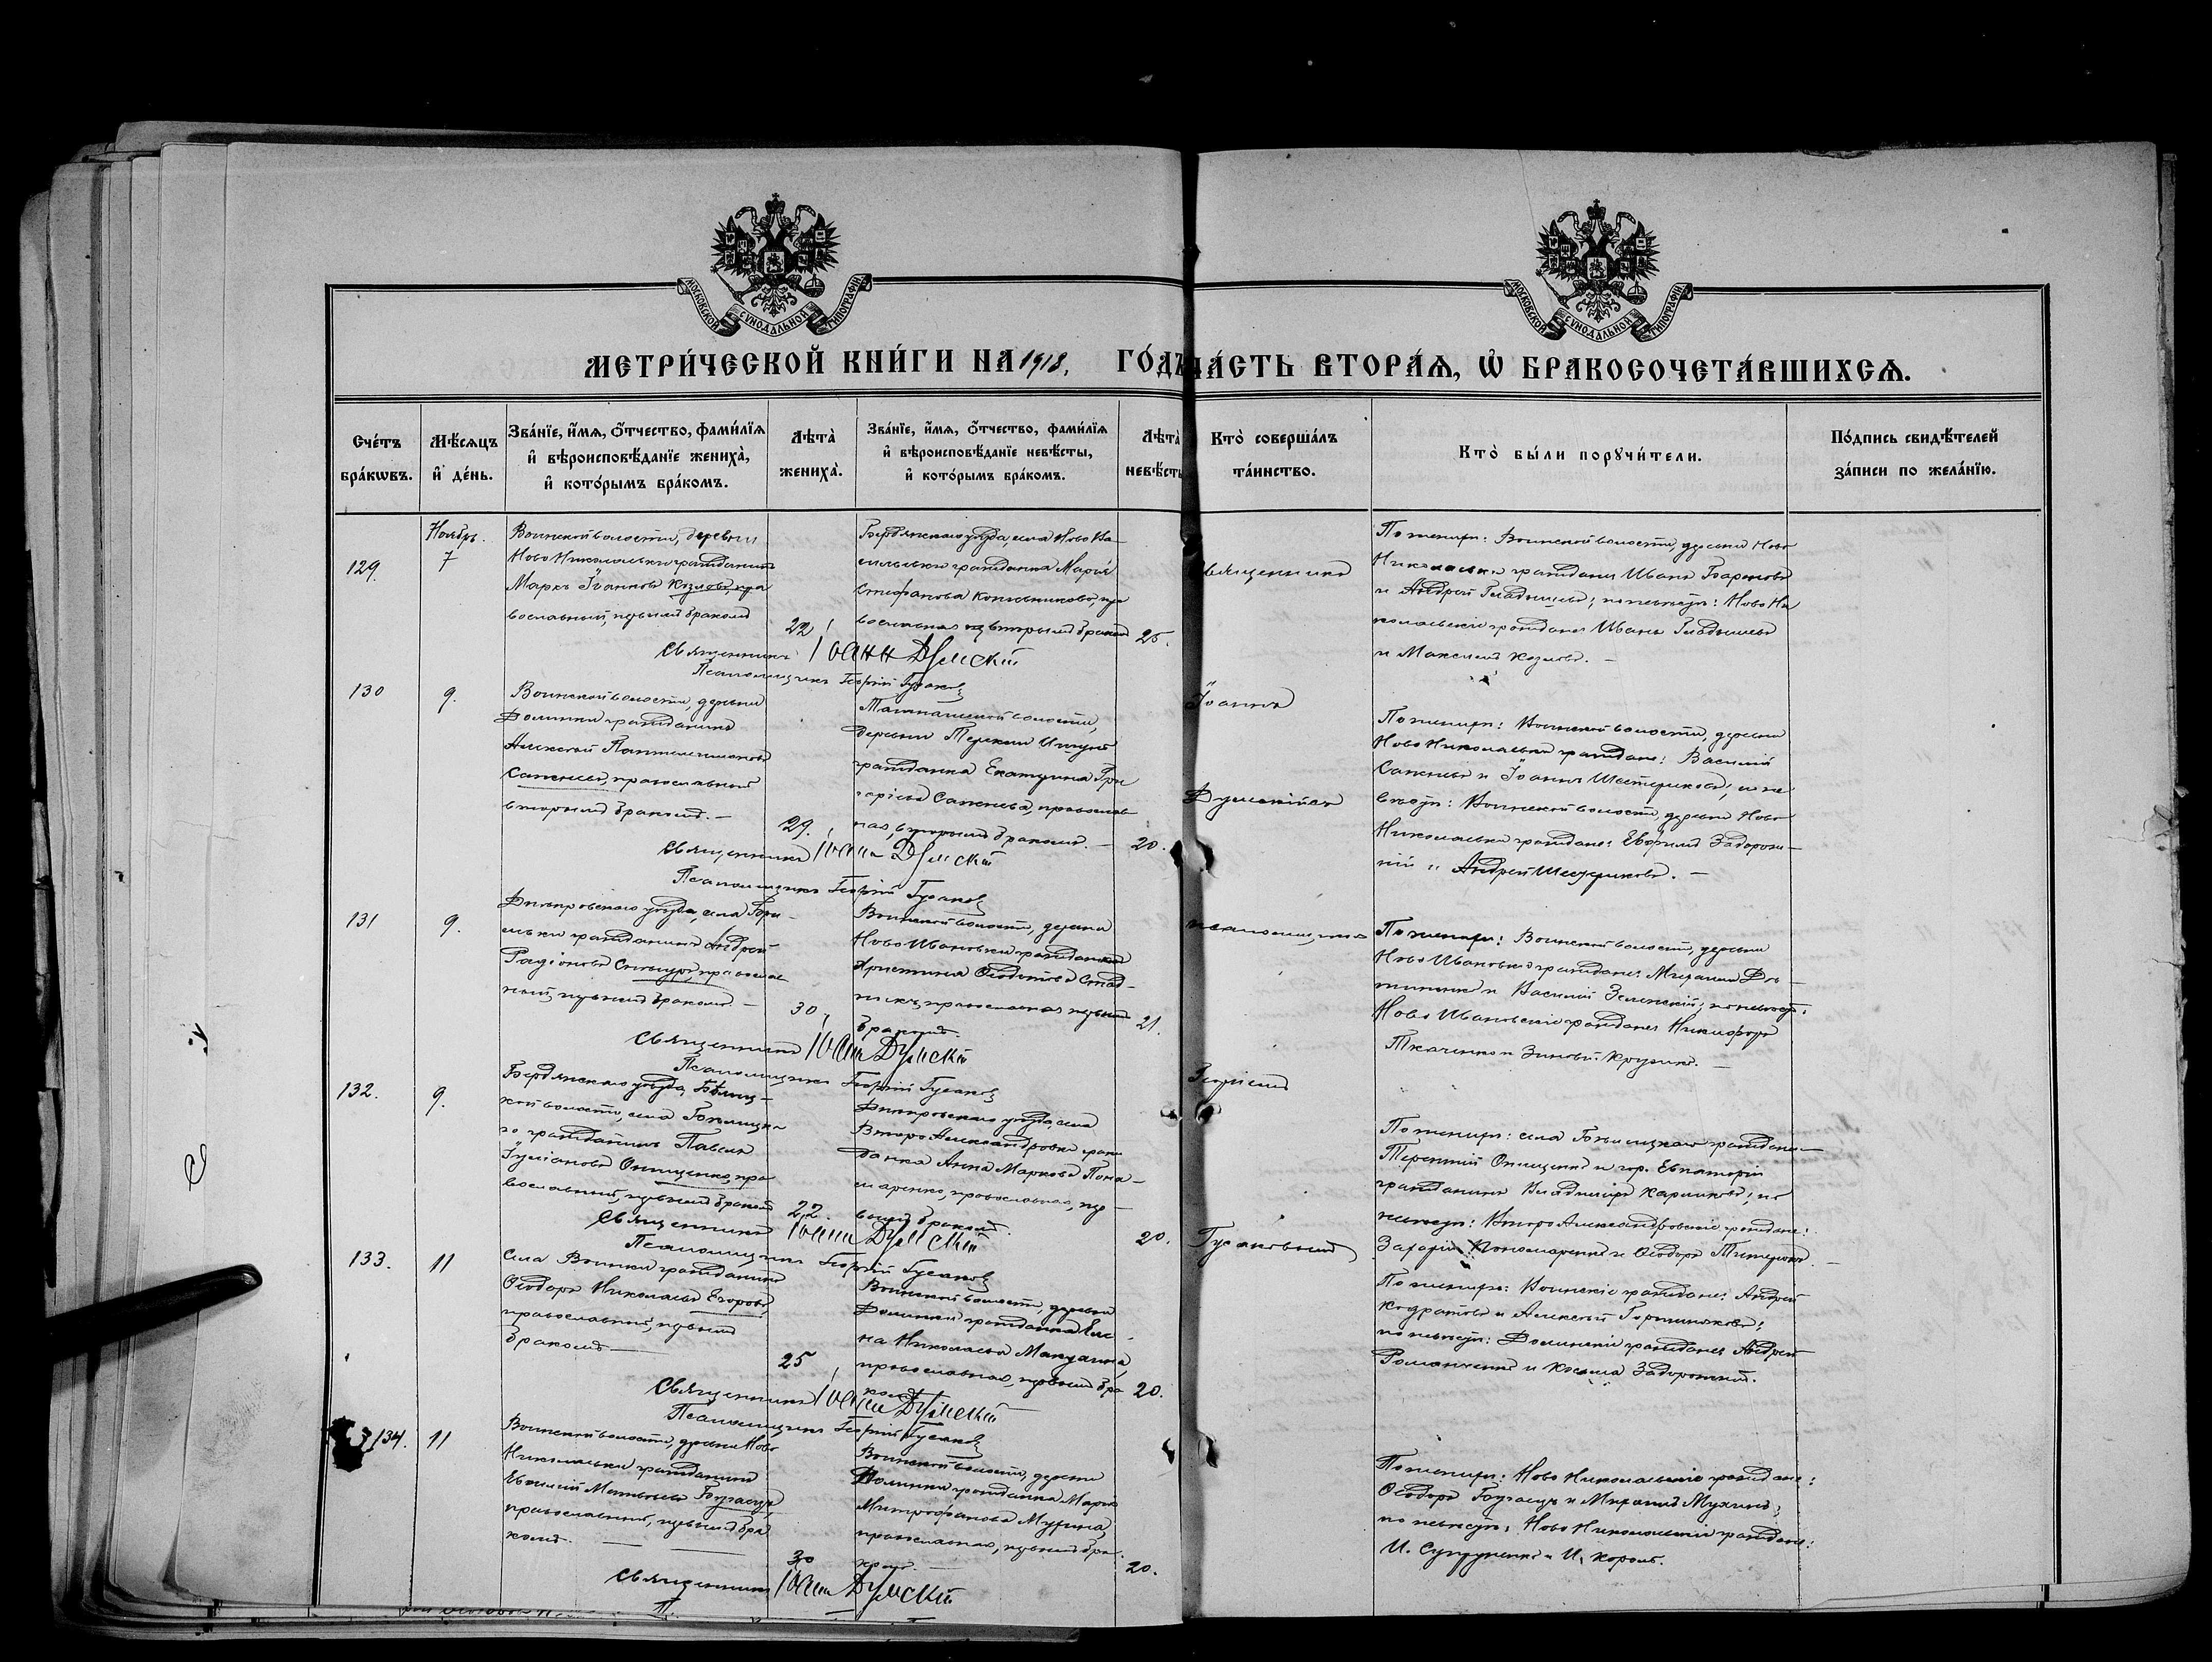 МОСКОВСКОЙ СУНОДАЛЬНОЙ ТИПОГРАФІИ
МОСКОВСКОЙ СУНОДАЛЬНОЙ ТИПОГРАФІИ
МЕТРИ́ЧЕСКОЙ КНИ́ГИ НА 1918. ГО́ДЪ ЧА́СТЬ ВТОРА́Ѧ, Ѽ БРАКОСОЧЕТА́ВШИХСѦ.
Сче́тъ бра́кѡвъ.
Мѣ́сѧцъ и҆ де́нь.
Зва́нїе, и҆́мѧ, ѻ҆́тчество, фами́лїѧ
и҆ вѣроисповѣ́данїе жениха̀,
и҆ кото́рымъ бра́комъ.
Лѣ́та̀ жениха̀.
Зва́нїе, и҆́мѧ, ѻ҆́тчество, фами́лїѧ
и҆ вѣроисповѣ́данїе невѣ́сты,
и҆ кото́рымъ бра́комъ.
Лѣ́та̀ невѣ́сты
Кто̀ соверша́лъ
та́инство.
Кто̀ бы́ли порꙋчи́тели.
По́дпись свидѣ́телей
за́писи по жела́нїю.
129.
Ноябрь.
7
Воинской волости, деревни
Ново Николаевки гражданинъ
Маркъ Іоанновъ Козловъ, пра
вославный, первымъ бракомъ
22
Бердянскаго уѣзда, села Ново Ва-
сильевки гражданка Марія
Стефанова, пра
вославная, вторымъ бракомъ
25.
Священникъ Іоаннъ Думскій
Псаломщикъ Георгій Гусаковъ
Священникъ
Іоаннъ
Думскій съ
псаломщикомъ
Георгіемъ
Гусаковымъ
По женихѣ: Воинской волости, деревни Ново
Николаевки граждане Иванъ
и Андрей Гладышевъ; по невѣстѣ: Ново Ни
колаевскіе граждане Иванъ Гладышевъ
и Максимъ Козловъ. —
130
9.
Воинской волости, деревни
Долинки гражданинъ
Алексѣй Пантелеимоновъ
Сапсневъ, православный
вторымъ бракомъ. —
29.
волости,
деревни
гражданка Екатерина Гри
горіева, православ
ная, вторымъ бракомъ. —
20.
Священникъ Іоаннъ Думскій
Псаломщикъ Георгій Гусаковъ
По женихѣ: Воинской волости, деревни
Ново Николаевки граждане: Василій
и Іоаннъ Шестериковъ; по не
вѣстѣ: Воинской волости, деревни Ново
Николаевки граждане: Евфимъ Задорож-
ній и Андрей Шестериковъ. —
131
9.
Днѣпровскаго уѣзда, села
гражданинъ Андрей
Радіоновъ, православ
ный, первымъ бракомъ —
30.
Воинской волости, деревни
Ново Ивановки гражданка
Христина Ѳеодотова Стад-
никъ, православная, первымъ
бракомъ.
21.
Священникъ Іоаннъ Думскій
Псаломщикъ Георгій Гусаковъ
По женихѣ: Воинской волости, деревни
Ново Ивановки граждане Михаилъ
и Василій Зеленскій; по невѣстѣ:
Ново Ивановскіе граждане Никифоръ
Ткаченко и Зиновій. —
132.
9.
Бердянскаго уѣзда,
волости, села
гражданинъ Павелъ
Іуліановъ Онищенко, пра
вославный, первымъ бракомъ
22.
Днѣпровскаго уѣзда, села
Второ Александровки граж
данка Анна Маркова Поно-
маренко, православная, пер-
вымъ бракомъ.
20.
Священникъ Іоаннъ Думскій
Псаломщикъ Георгій Гусаковъ
По женихѣ: села граждане —
Терентій Онищенко и гор. Евпаторіи
гражданинъ Владиміръ; по
невѣстѣ: Второ Александровскіе граждане:
Захарій Пономаренко и Ѳеодоръ. —
133.
11
Села Воинки гражданинъ
Ѳеодоръ Николаевъ Егоровъ
православный, первымъ
бракомъ —
25
Воинской волости, деревни
Долинки гражданка Еле
на Николаева,
православная, первымъ бра
комъ
20.
Священникъ Іоаннъ Думскій
Псаломщикъ Георгій Гусаковъ
По женихѣ: Воинскіе граждане: Андрей
Кодратовъ и Алексѣй;
по невѣстѣ: Долинскіе граждане Андрей
Романченко и Косьма Задорожній.
134.
11
Воинской волости, деревни Ново
Николаевки гражданинъ
Матвѣевъ Бугаецъ,
православный, первымъ бра
комъ. —
30
Воинской волости, деревни
Долинки гражданка Марія
Митрофанова,
православная, первымъ бра
комъ. —
20.
Священникъ Іоаннъ Думскій
По женихѣ: Ново Николаевскіе граждане:
Ѳеодоръ Бугаецъ и Михаилъ Мухинъ;
по невѣстѣ: Ново Николаевскіе граждане:
И. Супруненко и И. Король.